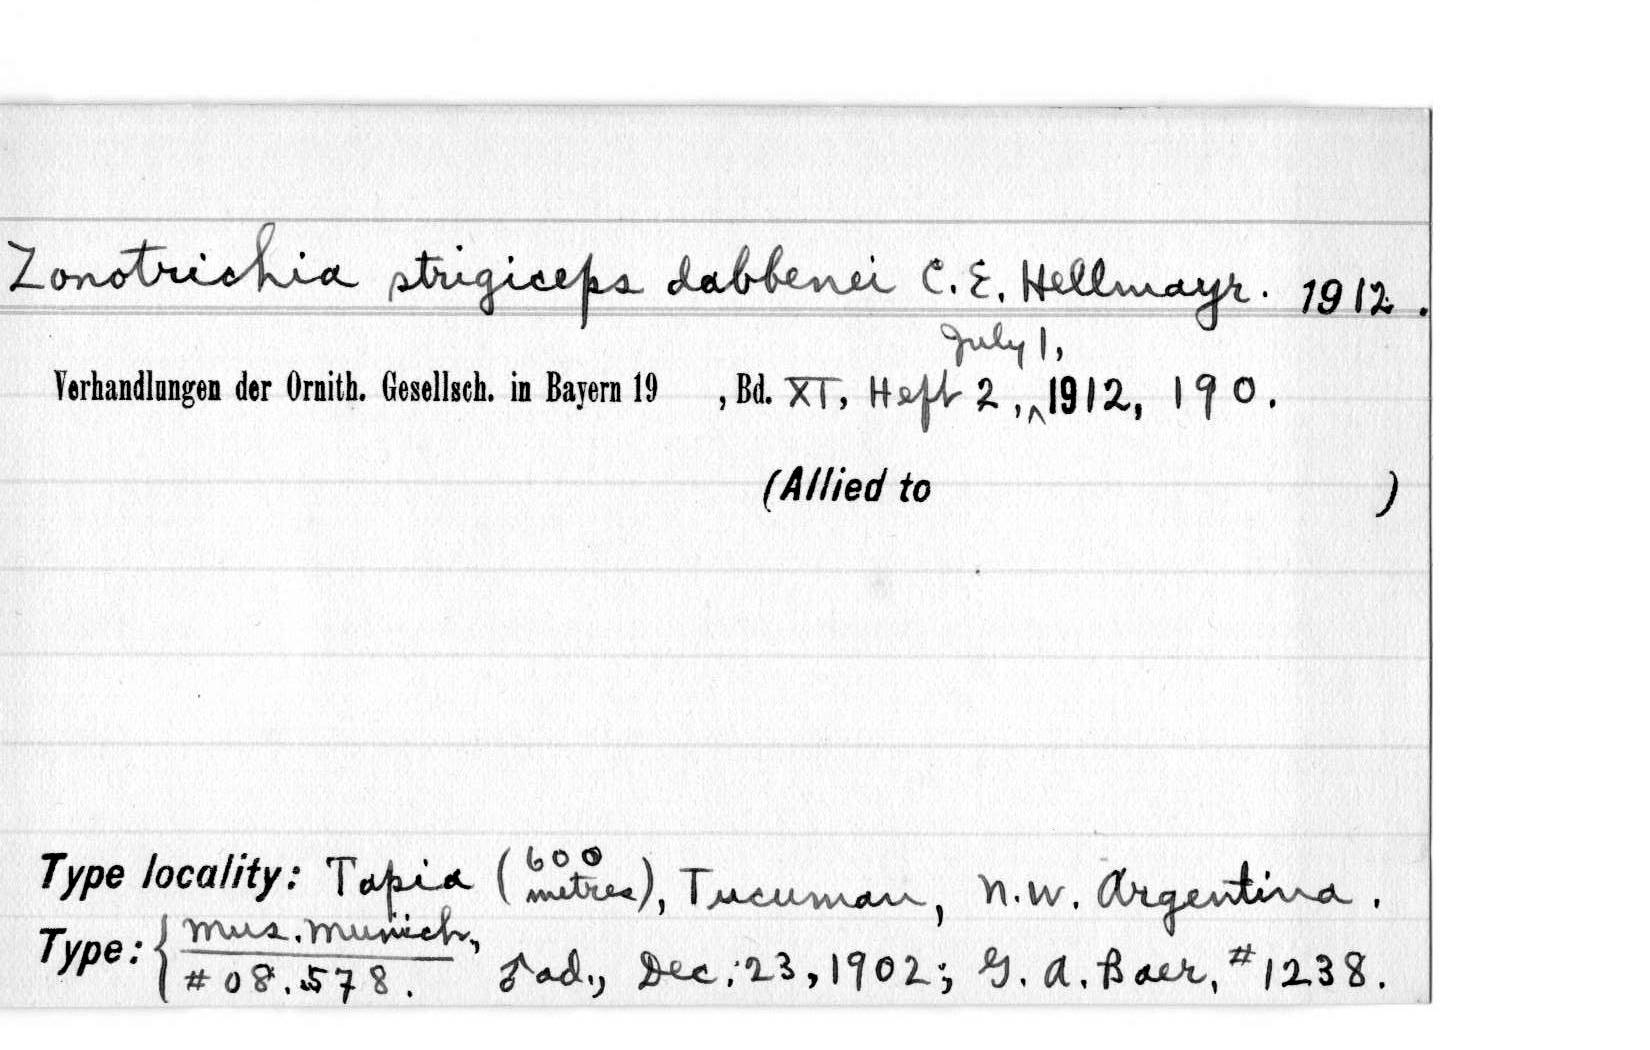 Zonotrichia strigiceps dabbenei C. E. Hellmayr. 1912.
July 1,
Verhandlungen der Ornith. Gesellsch. in Bayern 19 , Bd. XI, Heft 2, ^ 1912, 190.
(Allied to )
Type locality: Tapia (600 metres), Tucuman, N.W. Argentina.
Type: { Mus. Munich,
# 08.578. ♂ ad., Dec. 23, 1902; G. A. Baer, # 1238.